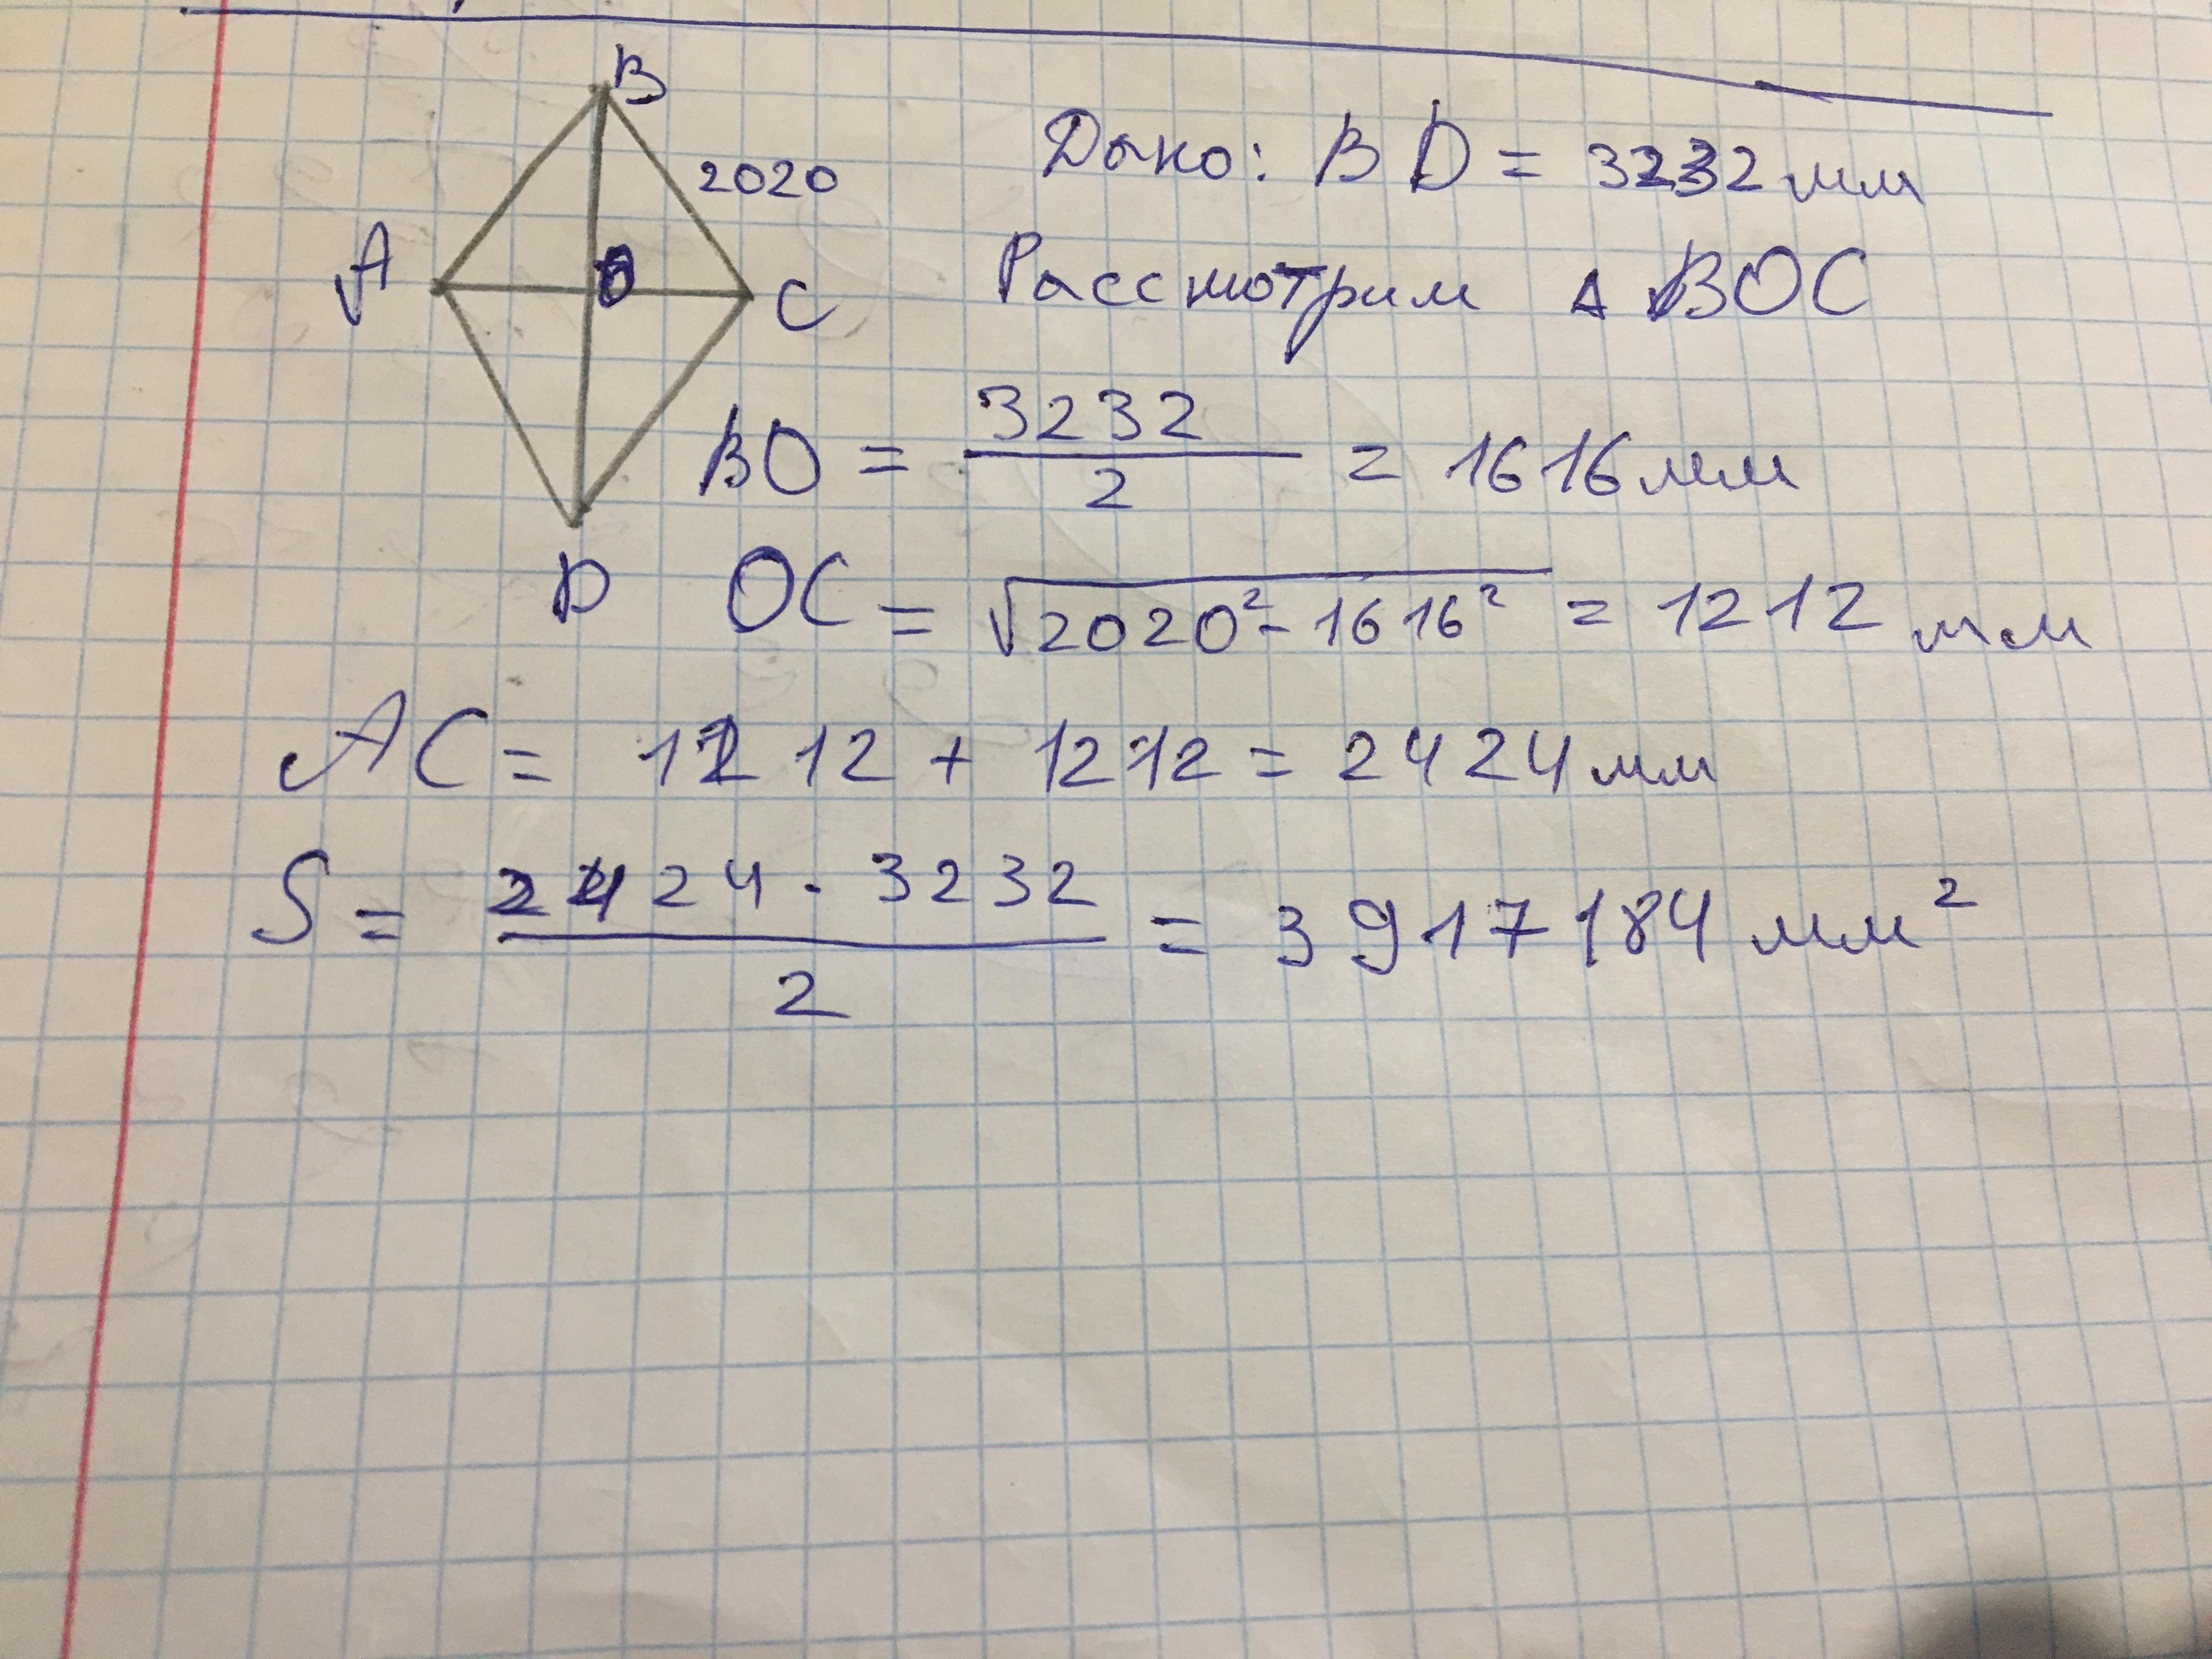 B
2020
A
O
C
D
Дано: BD = 3232 мм
Рассмотрим △ BOC
BO = 3232 / 2 = 1616 мм
OC = √2020² - 1616² = 1212 мм
AC = 1212 + 1212 = 2424 мм
S = 2424 · 3232 / 2 = 3917184 мм²